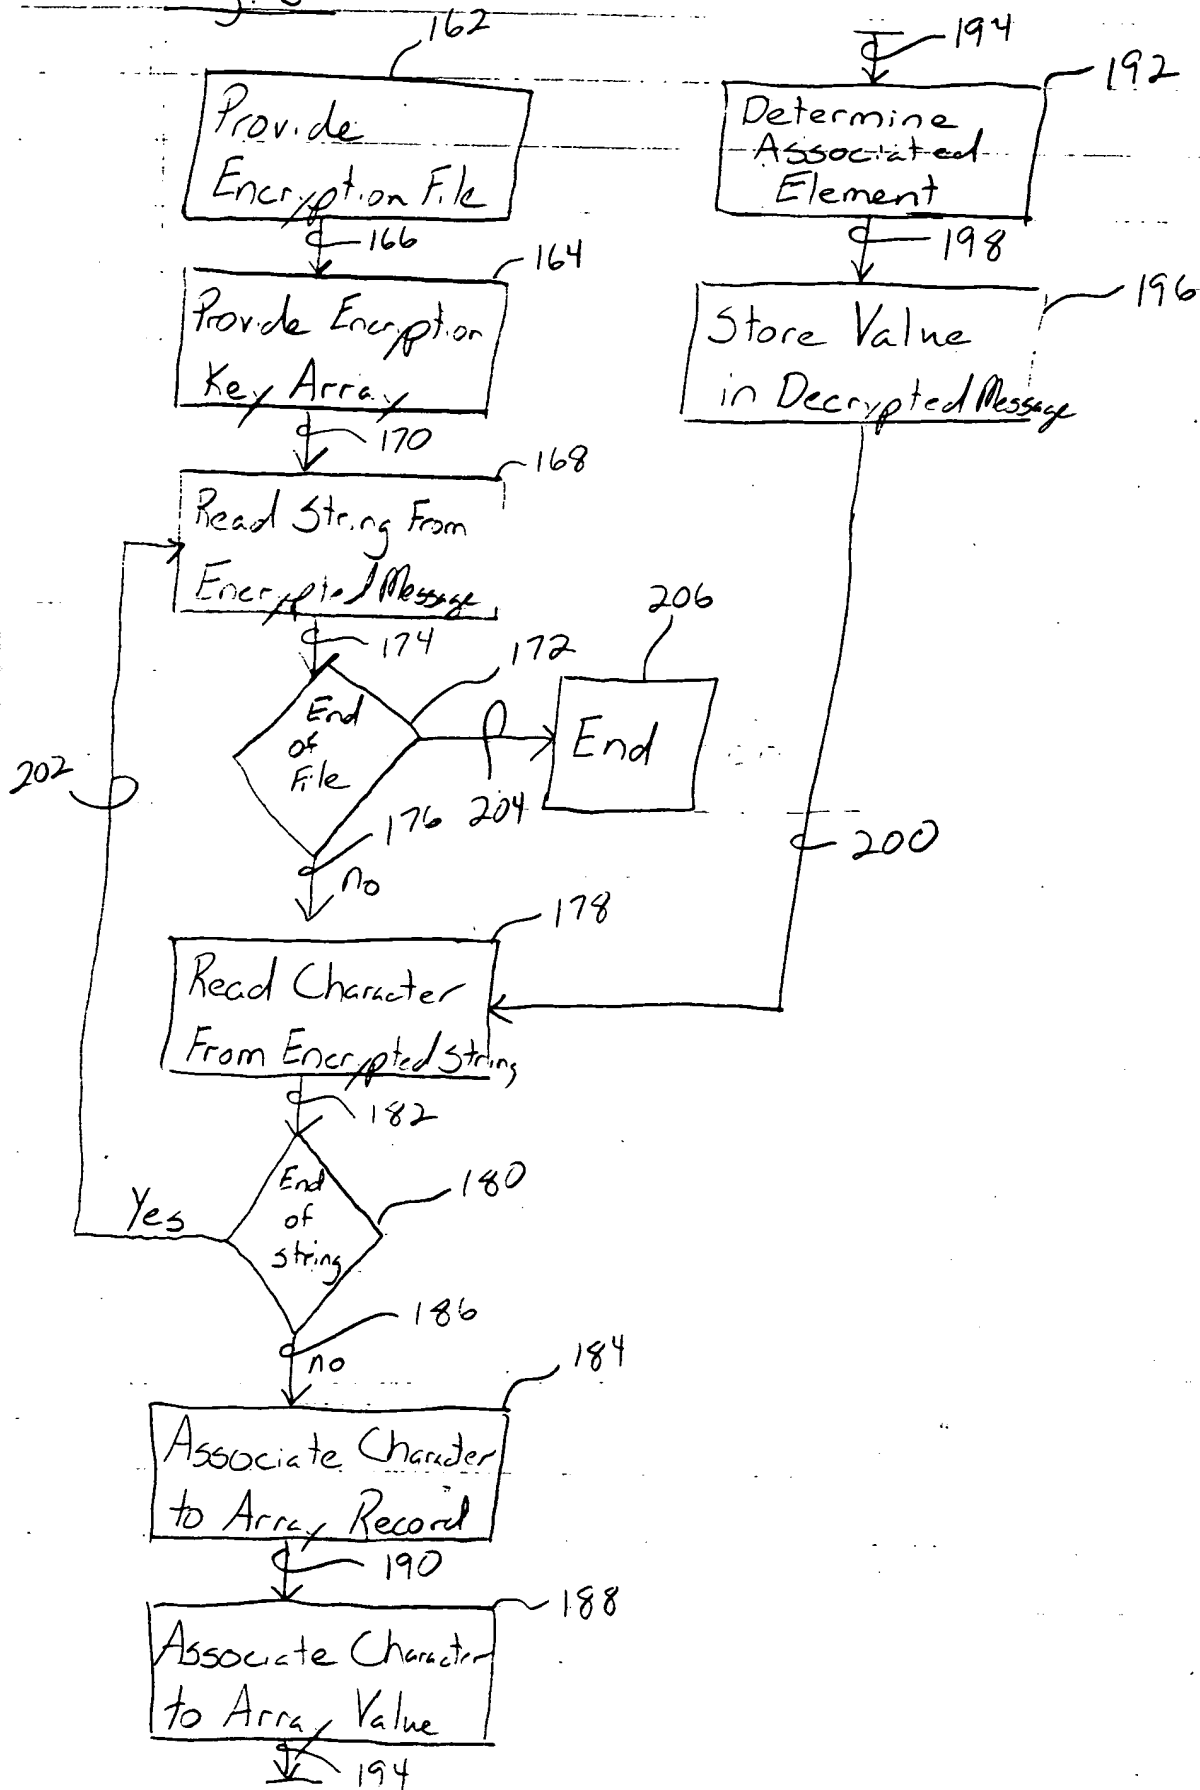 162
Provide
Encryption File
166
164
Provide Encryption
Key Array
170
168
Read String From
Encrypted Message
174
172
End
of
File
204
206
End
176
no
178
Read Character
From Encrypted String
182
180
End
of
string
Yes
202
186
no
184
Associate Character
to Array Record
190
188
Associate Character
to Array Value
194
194
192
Determine
Associated
Element
198
196
Store Value
in Decrypted Message
200